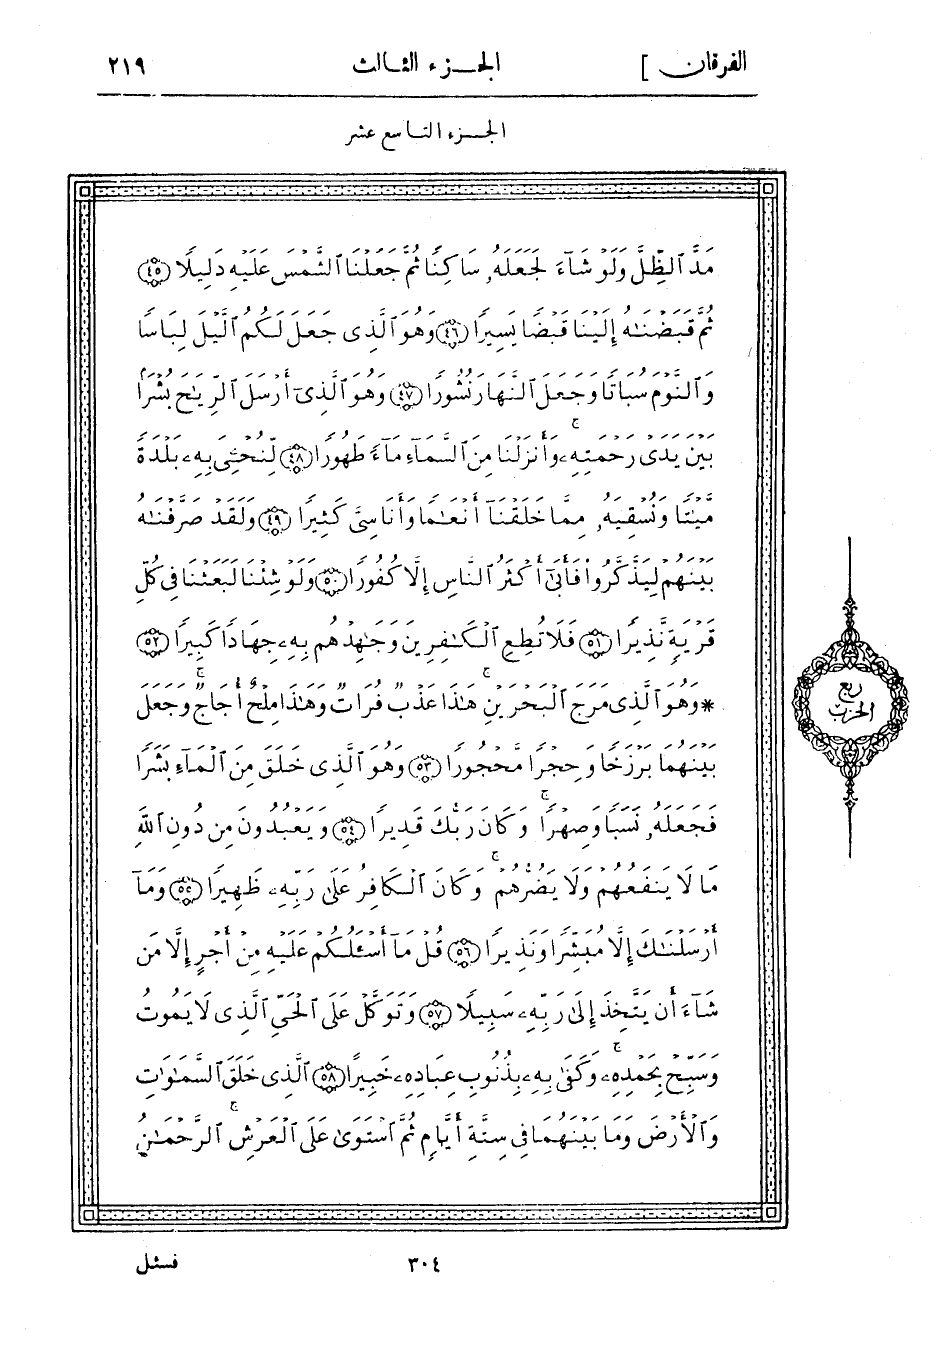 الفرقان ] الجزء الثالث ٢١٩
الجزء التاسع عشر
مَدَّ ٱلظِّلَّ وَلَوْ شَآءَ لَجَعَلَهُۥ سَاكِنًا ثُمَّ جَعَلْنَا ٱلشَّمْسَ عَلَيْهِ دَلِيلًا ﴿٤٥﴾
ثُمَّ قَبَضْنَٰهُ إِلَيْنَا قَبْضًا يَسِيرًا ﴿٤٦﴾ وَهُوَ ٱلَّذِى جَعَلَ لَكُمُ ٱلَّيْلَ لِبَاسًا
وَٱلنَّوْمَ سُبَاتًا وَجَعَلَ ٱلنَّهَارَ نُشُورًا ﴿٤٧﴾ وَهُوَ ٱلَّذِىٓ أَرْسَلَ ٱلرِّيَٰحَ بُشْرًۢا
بَيْنَ يَدَىْ رَحْمَتِهِۦ ۚ وَأَنزَلْنَا مِنَ ٱلسَّمَآءِ مَآءً طَهُورًا ﴿٤٨﴾ لِّنُحْۦِىَ بِهِۦ بَلْدَةً
مَّيْتًا وَنُسْقِيَهُۥ مِمَّا خَلَقْنَآ أَنْعَٰمًا وَأَنَاسِىَّ كَثِيرًا ﴿٤٩﴾ وَلَقَدْ صَرَّفْنَٰهُ
بَيْنَهُمْ لِيَذَّكَّرُوا۟ فَأَبَىٰٓ أَكْثَرُ ٱلنَّاسِ إِلَّا كُفُورًا ﴿٥٠﴾ وَلَوْ شِئْنَا لَبَعَثْنَا فِى كُلِّ
قَرْيَةٍ نَّذِيرًا ﴿٥١﴾ فَلَا تُطِعِ ٱلْكَٰفِرِينَ وَجَٰهِدْهُم بِهِۦ جِهَادًا كَبِيرًا ﴿٥٢﴾
* وَهُوَ ٱلَّذِى مَرَجَ ٱلْبَحْرَيْنِ ۚ هَٰذَا عَذْبٌ فُرَاتٌ وَهَٰذَا مِلْحٌ أُجَاجٌ ۚ وَجَعَلَ
بَيْنَهُمَا بَرْزَخًا وَحِجْرًا مَّحْجُورًا ﴿٥٣﴾ وَهُوَ ٱلَّذِى خَلَقَ مِنَ ٱلْمَآءِ بَشَرًا
فَجَعَلَهُۥ نَسَبًا وَصِهْرًا ۚ وَكَانَ رَبُّكَ قَدِيرًا ﴿٥٤﴾ وَيَعْبُدُونَ مِن دُونِ ٱللَّهِ
مَا لَا يَنفَعُهُمْ وَلَا يَضُرُّهُمْ ۚ وَكَانَ ٱلْكَافِرُ عَلَىٰ رَبِّهِۦ ظَهِيرًا ﴿٥٥﴾ وَمَآ
أَرْسَلْنَٰكَ إِلَّا مُبَشِّرًا وَنَذِيرًا ﴿٥٦﴾ قُلْ مَآ أَسْـَٔلُكُمْ عَلَيْهِ مِنْ أَجْرٍ إِلَّا مَن
شَآءَ أَن يَتَّخِذَ إِلَىٰ رَبِّهِۦ سَبِيلًا ﴿٥٧﴾ وَتَوَكَّلْ عَلَى ٱلْحَىِّ ٱلَّذِى لَا يَمُوتُ
وَسَبِّحْ بِحَمْدِهِۦ ۚ وَكَفَىٰ بِهِۦ بِذُنُوبِ عِبَادِهِۦ خَبِيرًا ﴿٥٨﴾ ٱلَّذِى خَلَقَ ٱلسَّمَٰوَٰتِ
وَٱلْأَرْضَ وَمَا بَيْنَهُمَا فِى سِتَّةِ أَيَّامٍ ثُمَّ ٱسْتَوَىٰ عَلَى ٱلْعَرْشِ ۚ ٱلرَّحْمَٰنُ
ربع
الحزب
٣٠٤ فسئل